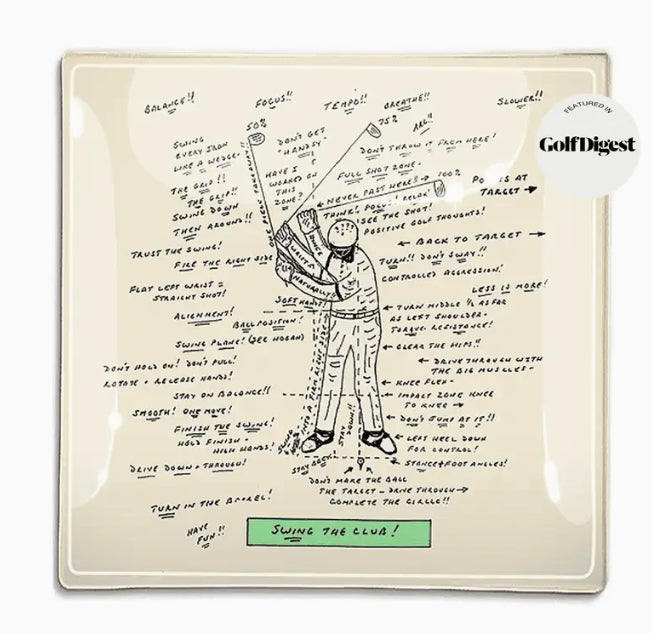 BALANCE!!
FOCUS!!
TEMPO!!
BREATHE!!
SLOWER!!
FEATURED IN
GolfDigest
50%
75%
ARG!!
SWING
EVERY IRON
LIKE A WEDGE.
THE GRIP!!
THE GRIP!!
SWING DOWN
THEN AROUND!!
DON'T GET
"HANDSY"
HAVE I
WORKED ON
THIS
ZONE?
DON'T THROW IT FROM HERE!
FULL SHOT ZONE.
NEVER PAST HERE!!
100%
IS AT
TARGET
THINK!
RELAX!
SEE THE SHOT!
POSITIVE GOLF THOUGHTS!
TRUST THE SWING!
BACK TO TARGET
FIRE THE RIGHT SIDE
HINGE
WRISTS
NATURALLY
TURN!! DON'T SWAY!!
CONTROLLED AGGRESSION!
FLAT LEFT WRIST =
STRAIGHT SHOT!
LESS IS MORE!
SOFT HANDS!
ALIGNMENT!
BALL POSITION!
TURN MIDDLE 1/2 AS FAR
AS LEFT SHOULDER.
TORQUE. RESISTANCE!
SWING PLANE! (SEE HOGAN)
CLEAR THE HIPS!!
DON'T HOLD ON! DON'T PULL!
ROTATE + RELEASE HANDS!
DRIVE THROUGH WITH
THE BIG MUSCLES.
KNEE FLEX.
STAY ON BALANCE!!
IMPACT ZONE KNEE
TO KNEE
SMOOTH! ONE MOVE!
INTO A FIRM RIGHT SIDE
DON'T JUMP AT IT!!
FINISH THE SWING!
HOLD FINISH.
HIGH HANDS!
STAY
DOWN!!
LEFT HEEL DOWN
FOR CONTROL!
DRIVE DOWN + THROUGH!
STAY BACK!
STANCE + FOOT ANGLES!
DON'T MAKE THE BALL
THE TARGET - DRIVE THROUGH
COMPLETE THE CIRCLE!!
TURN IN THE BARREL!
HAVE
FUN!!
SWING THE CLUB!